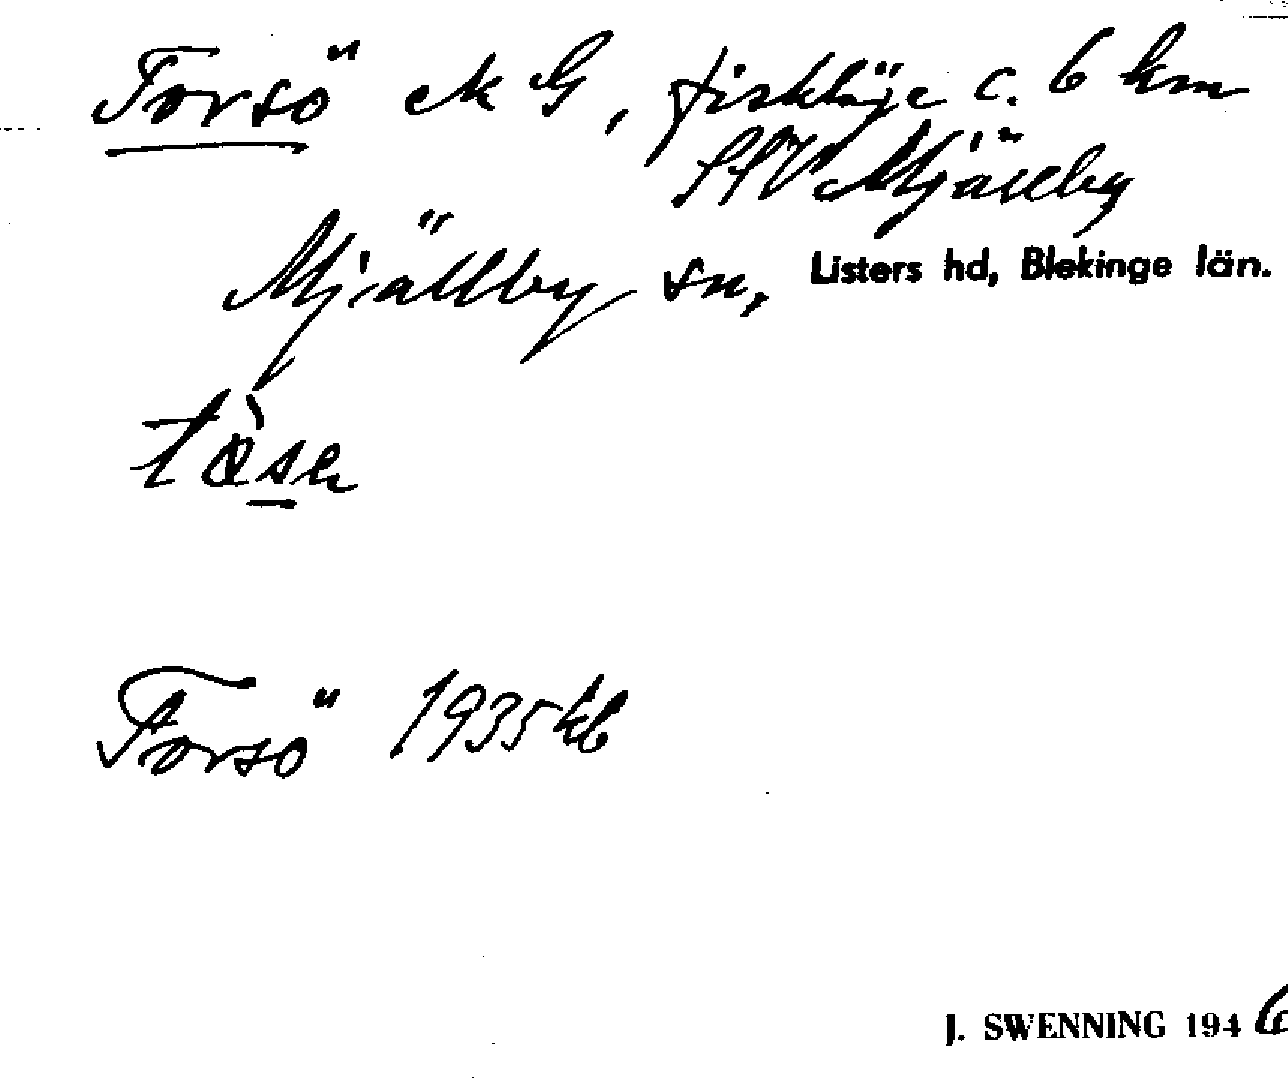 Torsö NG, fiskläge c. 6 km
SSV Mjällby
Mjällby sn, Listers hd, Blekinge län.
Torsö 1935 kb
J. SWENNING 1946